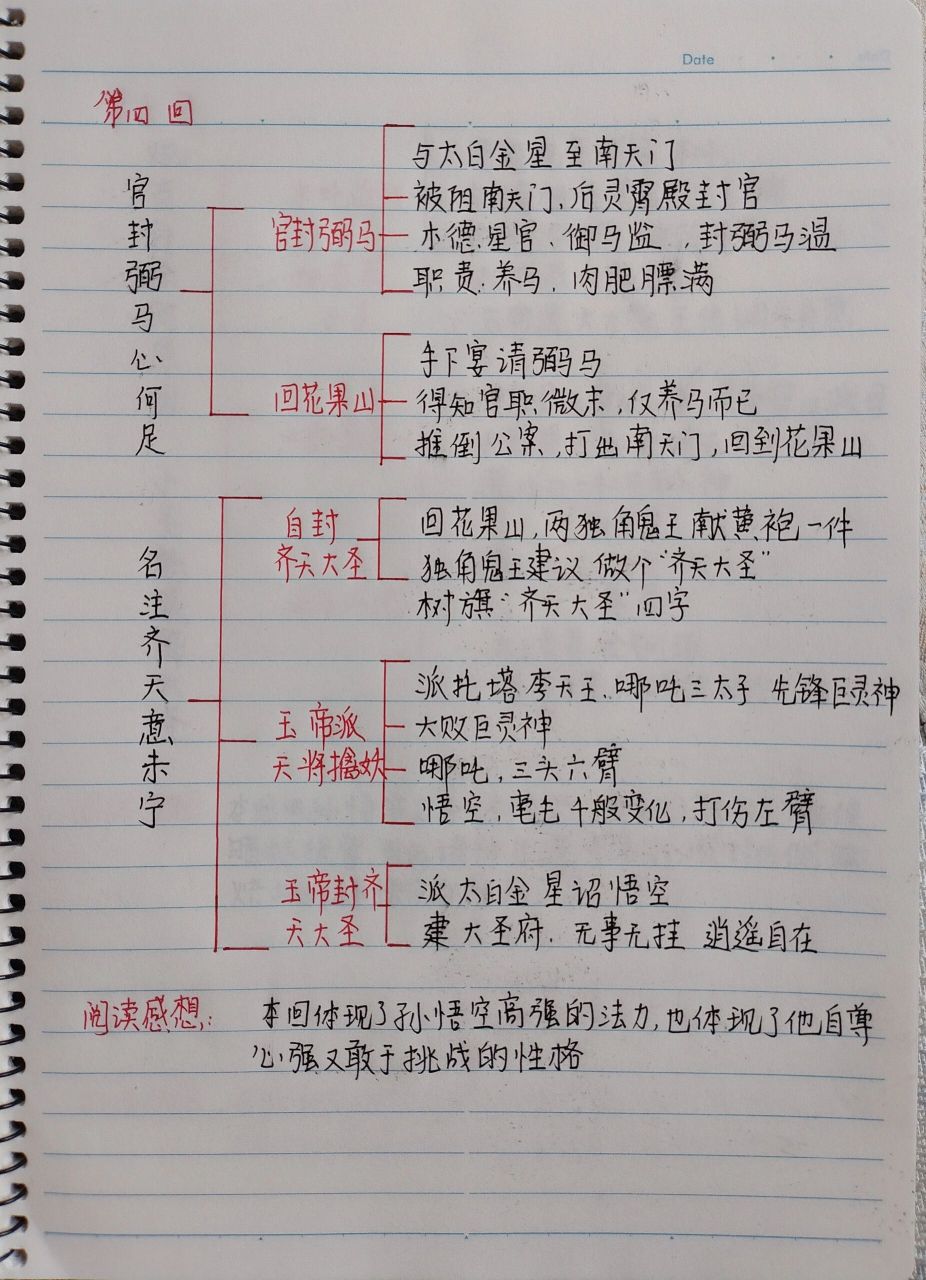 Date
第四回
官封弼马心何足
官封弼马
与太白金星至南天门
被阻南天门，后灵霄殿封官
木德星官、御马监，封弼马温
职责：养马，肉肥膘满
回花果山
手下宴请弼马
得知官职微末，仅养马而已
推倒公案，打出南天门，回到花果山
名注齐天意未宁
自封
齐天大圣
回花果山，两独角鬼王献黄袍一件
独角鬼王建议做个“齐天大圣”
树旗“齐天大圣”四字
玉帝派
天将擒妖
派托塔李天王、哪吒三太子 先锋巨灵神
大败巨灵神
哪吒，三头六臂
悟空，毫毛千般变化，打伤左臂
玉帝封齐
天大圣
派太白金星诏悟空
建大圣府．无事无挂 逍遥自在
阅读感想：本回体现了孙悟空高强的法力，也体现了他自尊
心强又敢于挑战的性格